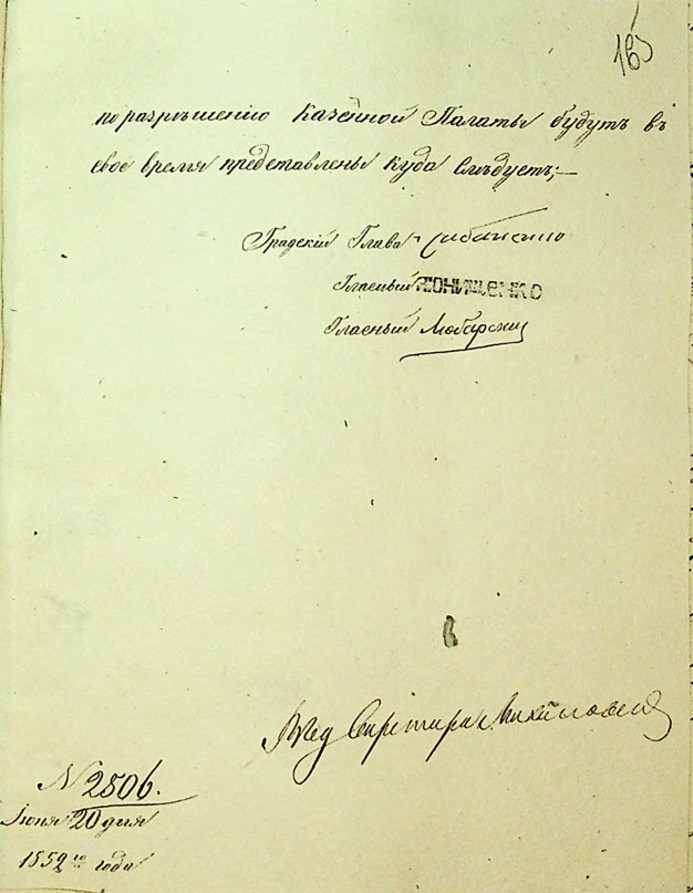 165
по разрѣшенію Казенной Палаты будутъ въ
свое время представлены куда слѣдуетъ;—
Градскій Глава
Гласный ОНИЩЕНКО
Гласный Любарскій
N 2506.
Іюня 20 дня
1852го года